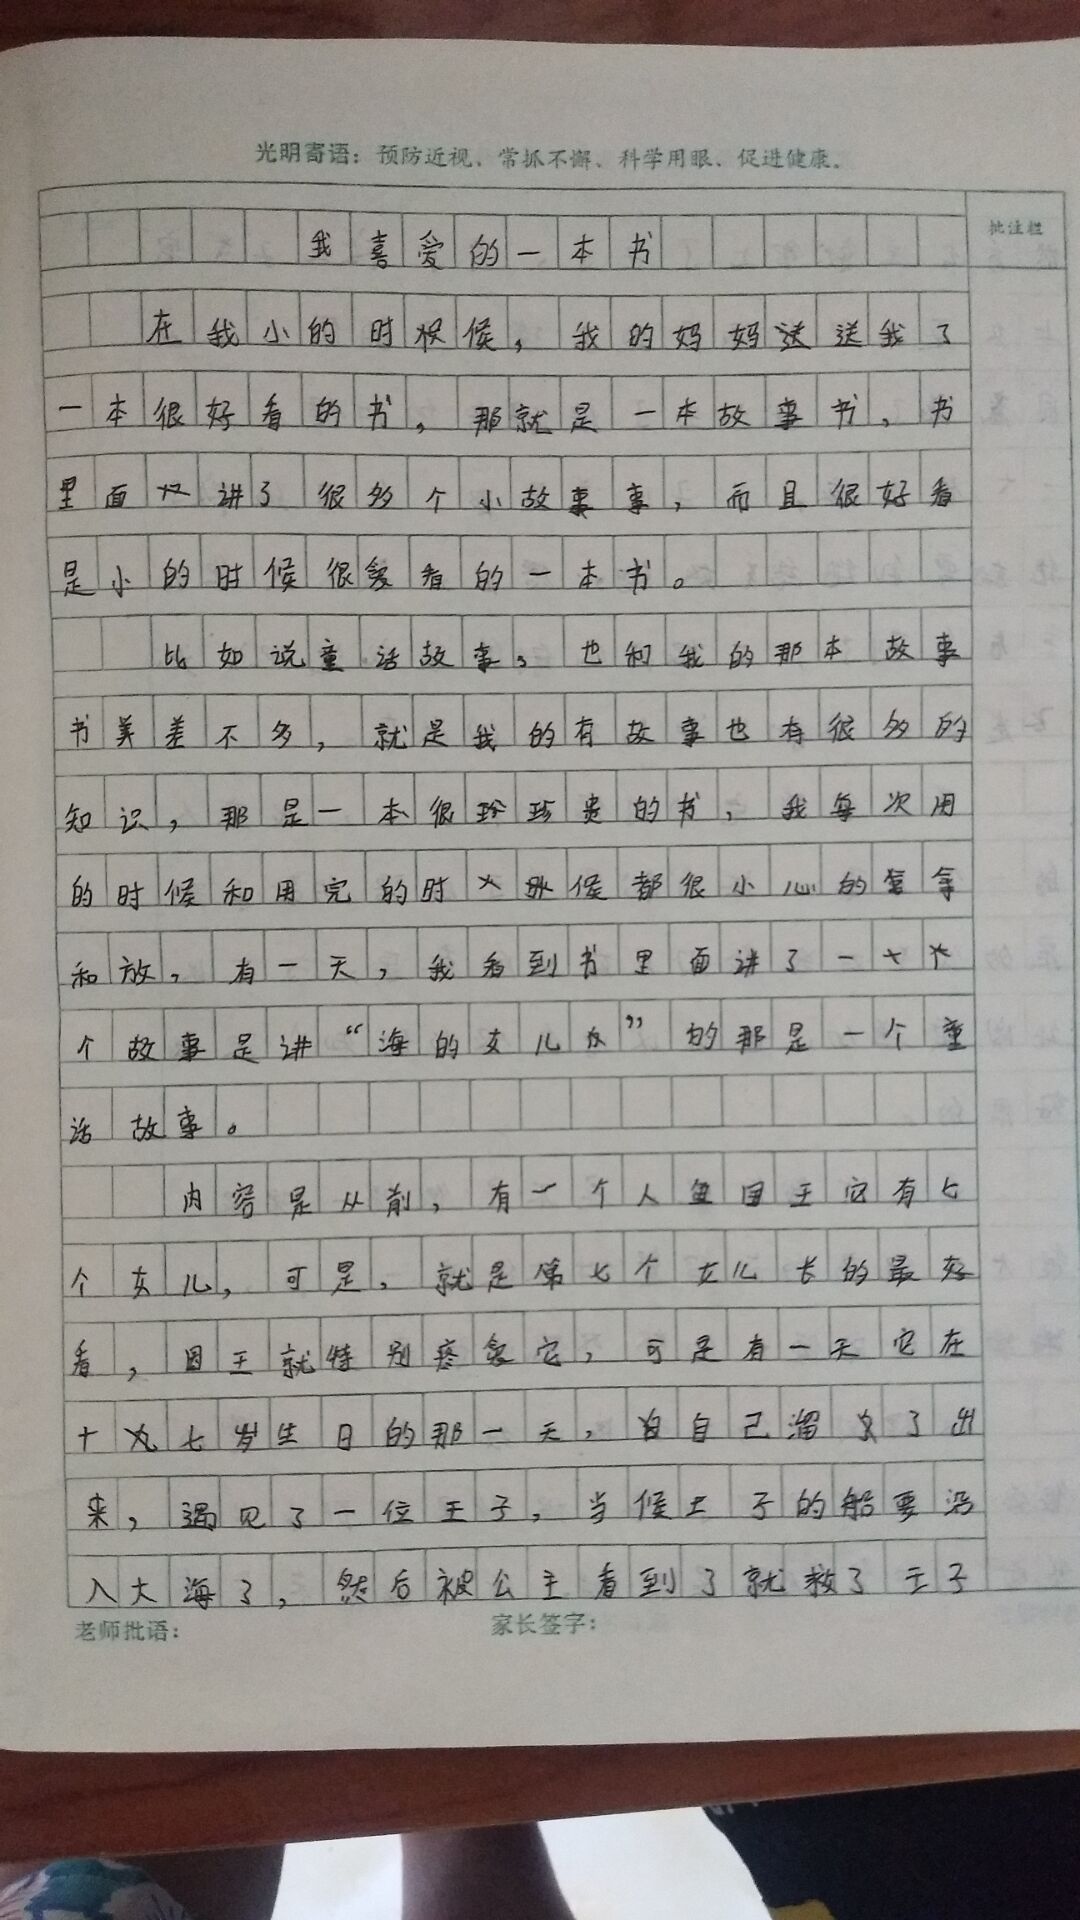 光明寄语：预防近视、常抓不懈、科学用眼、促进健康。
批注栏
我喜爱的一本书
在我小的时候，我的妈妈送我了
一本很好看的书，那就是一本故事书，书
里面讲了很多个小故事，而且很好看
是小的时候很爱看的一本书。
比如说童话故事，也和我的那本故事
书差不多，就是我的有故事也有很多的
知识，那是一本很珍贵的书，我每次用
的时候和用完的时候都很小心的拿
和放，有一天，我看到书里面讲了一
个故事是讲“海的女儿”的那是一个童
话故事。
内容是从前，有一个人鱼国王它有七
个女儿，可是，就是第七个女儿长的最好
看，国王就特别疼爱它，可是有一天它在
十七岁生日的那一天，自己溜了出
来，遇见了一位王子，当候王子的船要沿
入大海了，然后被公主看到了就救了王子
老师批语：
家长签字：